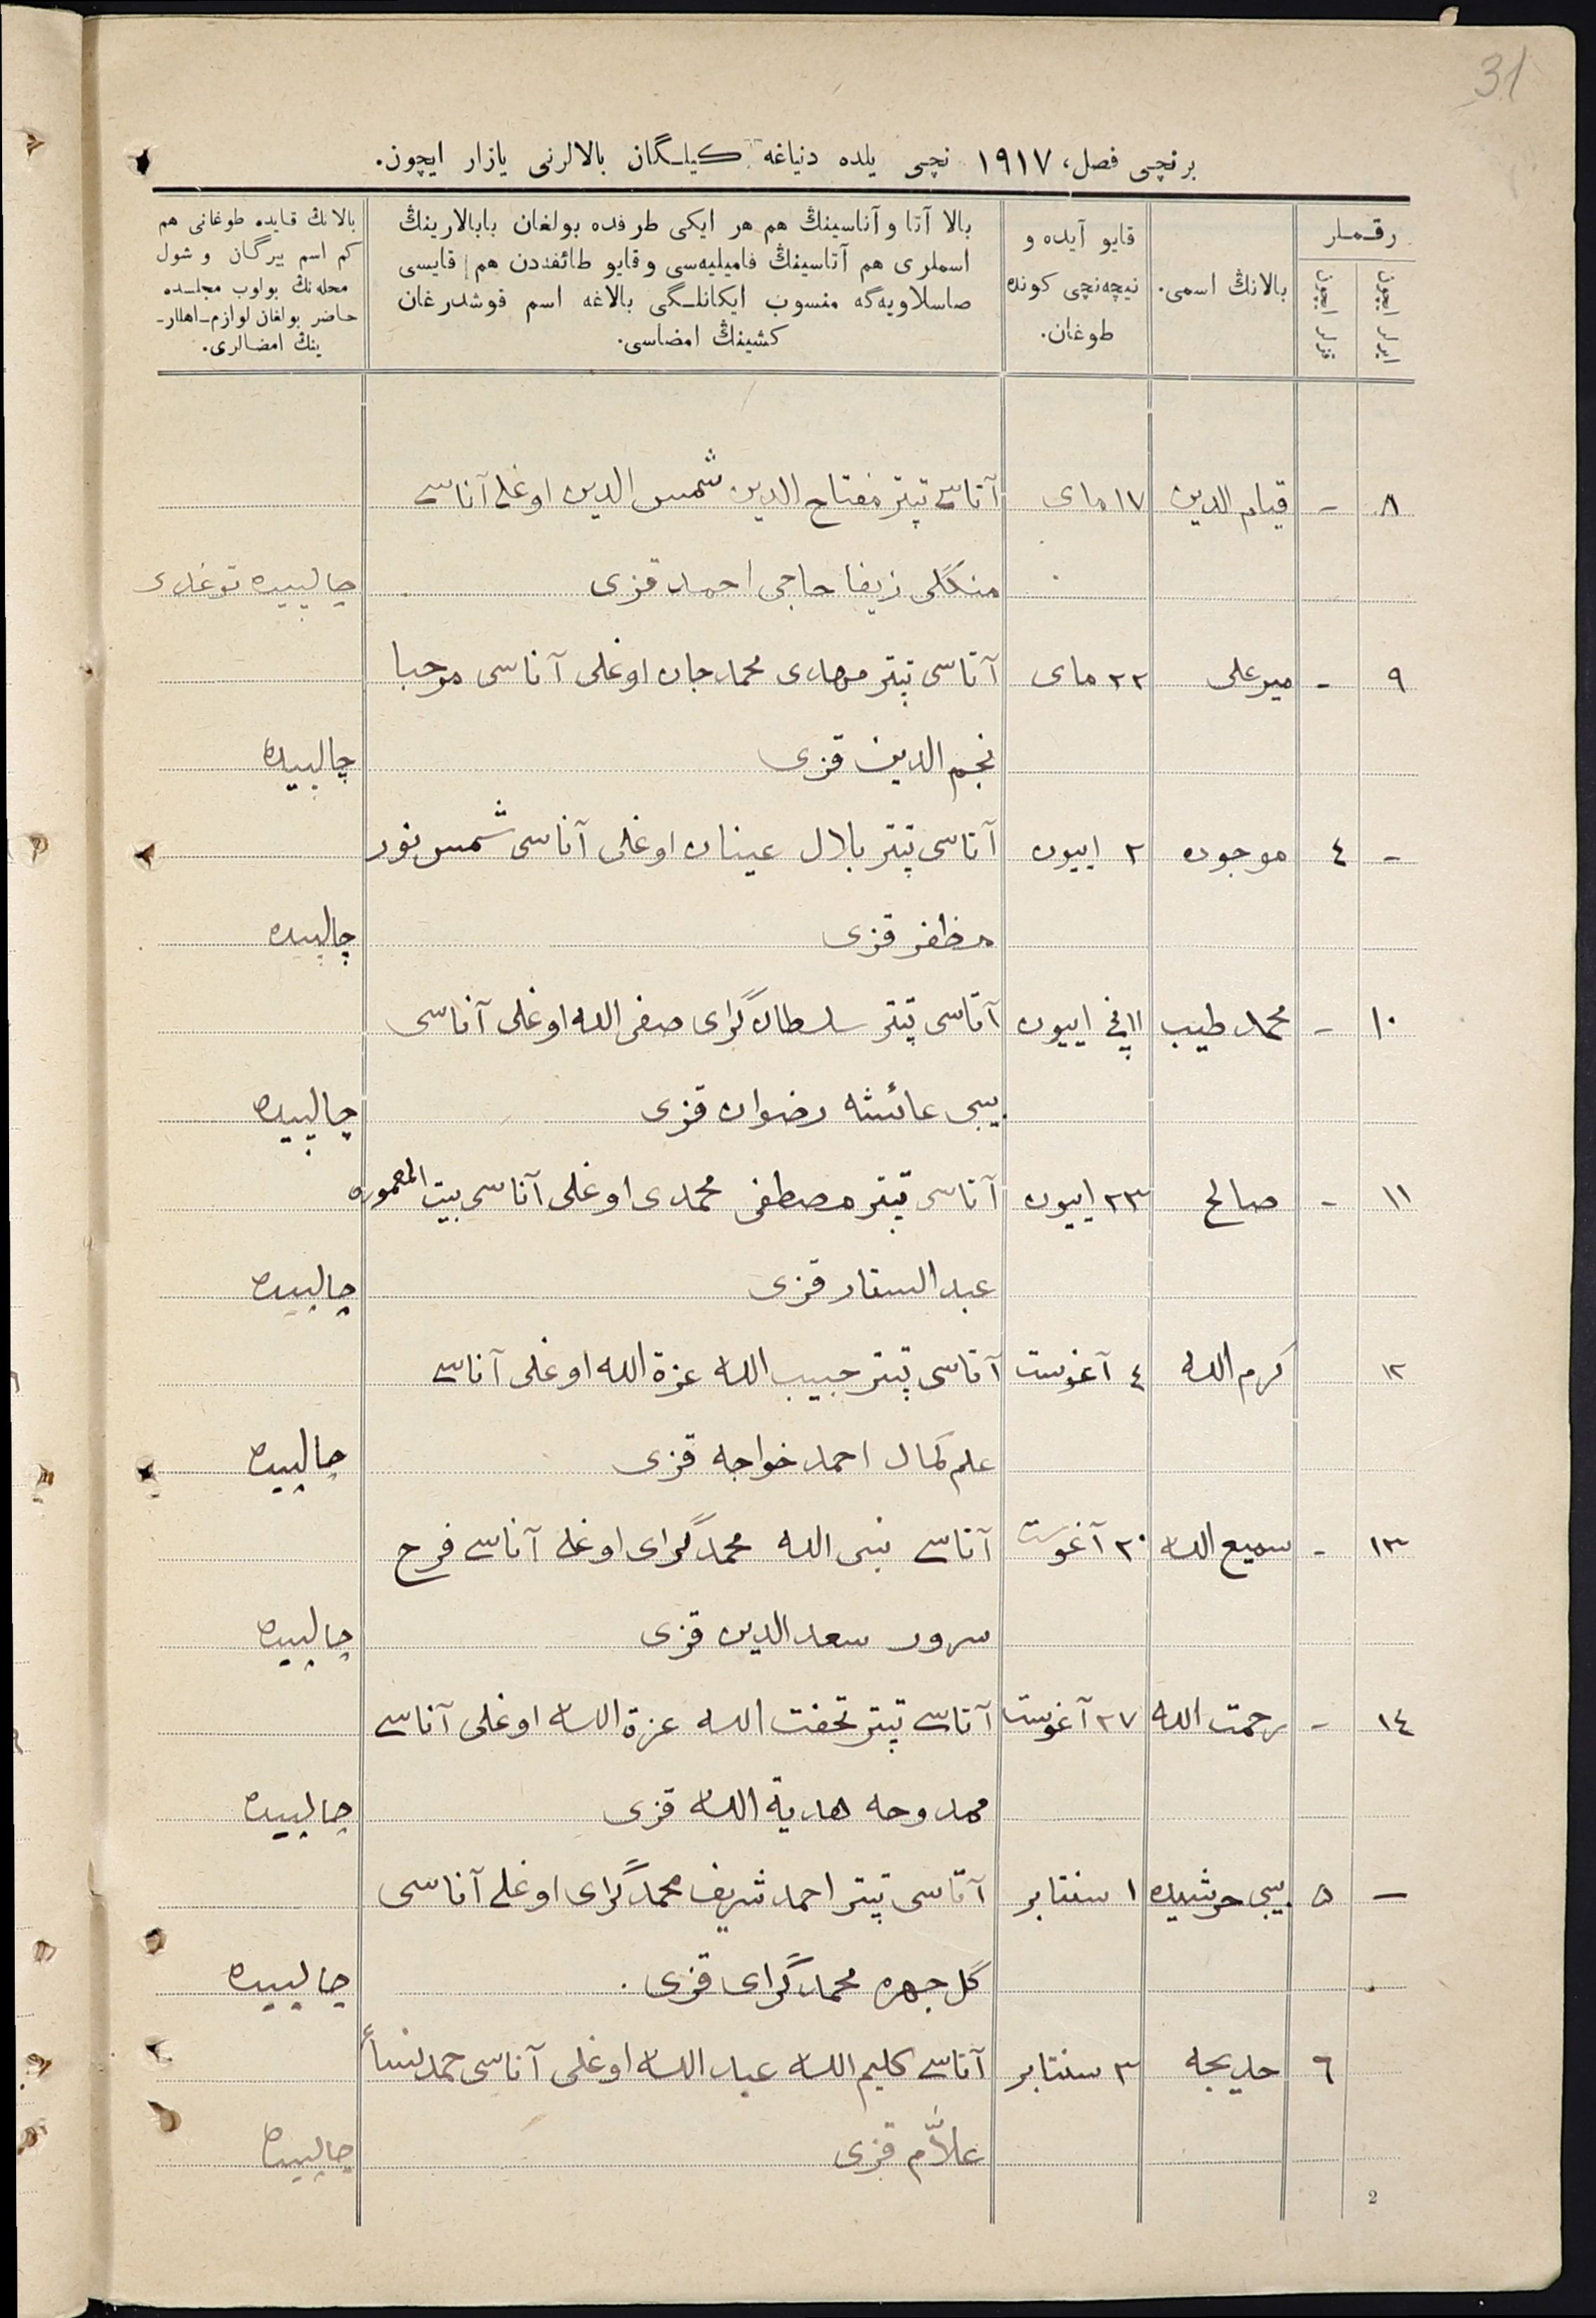 31
برنچی فصل، ١٩١٧ نچی یلده دنیاغه کیلـگان بالالرنی یازار ایچون.
رقـمـلر
ایرلر ایچون
قزلر ایچون
بالانڭ اسمی.
قایو آیده و
نیچه‌نچی کونده
طوغان.
بالا آتا و آناسینڭ هم هر ایکی طرفده بولغان بابالارینڭ
اسملری هم آتاسینڭ فامیلیه‌سی و قایو طائفه‌دن هم قایسی
صاسلاویه‌گه منسوب ایکانلـگی بالاغه اسم قوشدرغان
کشینڭ امضاسی.
بالانڭ قایده طوغانی هم
کم اسم بیرگان و شول
محله‌نڭ بولوب مجلـسده
حاضر بولغان لوازم ـ اهللر ـ
ینڭ امضـالری.
٨ - قیام الدین ١٧ مای آتاسی تیتر مفتاح الدین شمس الدین اوغلی آناسی
منگلی زیفا حاجی احمد قزی چالپیده توغدی
٩ - میر علی ٢٢ مای آتاسی تیتر مهدی محمد جان اوغلی آناسی مرحبا
نجم الدین قزی چالپیده
- ٤ موجوده ٢ اییون آتاسی تیتر بلال عینان اوغلی آناسی شمس نور
مظفر قزی چالپیده
١٠ - محمد طیب ١١ نچی اییون آتاسی تیتر سلطان گرای صفی الله اوغلی آناسی
بیبی عائشه رضوان قزی چالپیده
١١ - صالح ٢٣ اییون آتاسی تیتر مصطفی محمدی اوغلی آناسی بیت المعموره
عبد الستار قزی چالپیده
١٢ کرم الله ٤ آغوست آتاسی تیتر حبیب الله عزة الله اوغلی آناسی
علم کمال احمد خواجه قزی چالپیده
١٣ - سمیع الله ٢٠ آغوست آتاسی نبی الله محمد گرای اوغلی آناسی فرح
سرور سعد الدین قزی چالپیده
١٤ - رحمت الله ٢٧ آغوست آتاسی تیتر تحفت الله عزة الله اوغلی آناسی
ممدوحه هدیة الله قزی چالپیده
— ٥ بیبی مرشیده ١ سنتابر آتاسی تیتر احمد شریف محمد گرای اوغلی آناسی
گل جهره محمد گرای قزی. چالپیده
٦ خدیجه ٣ سنتابر آتاسی کلیم الله عبد الله اوغلی آناسی حمد نسأ
علاّم قزی چالپیده
2